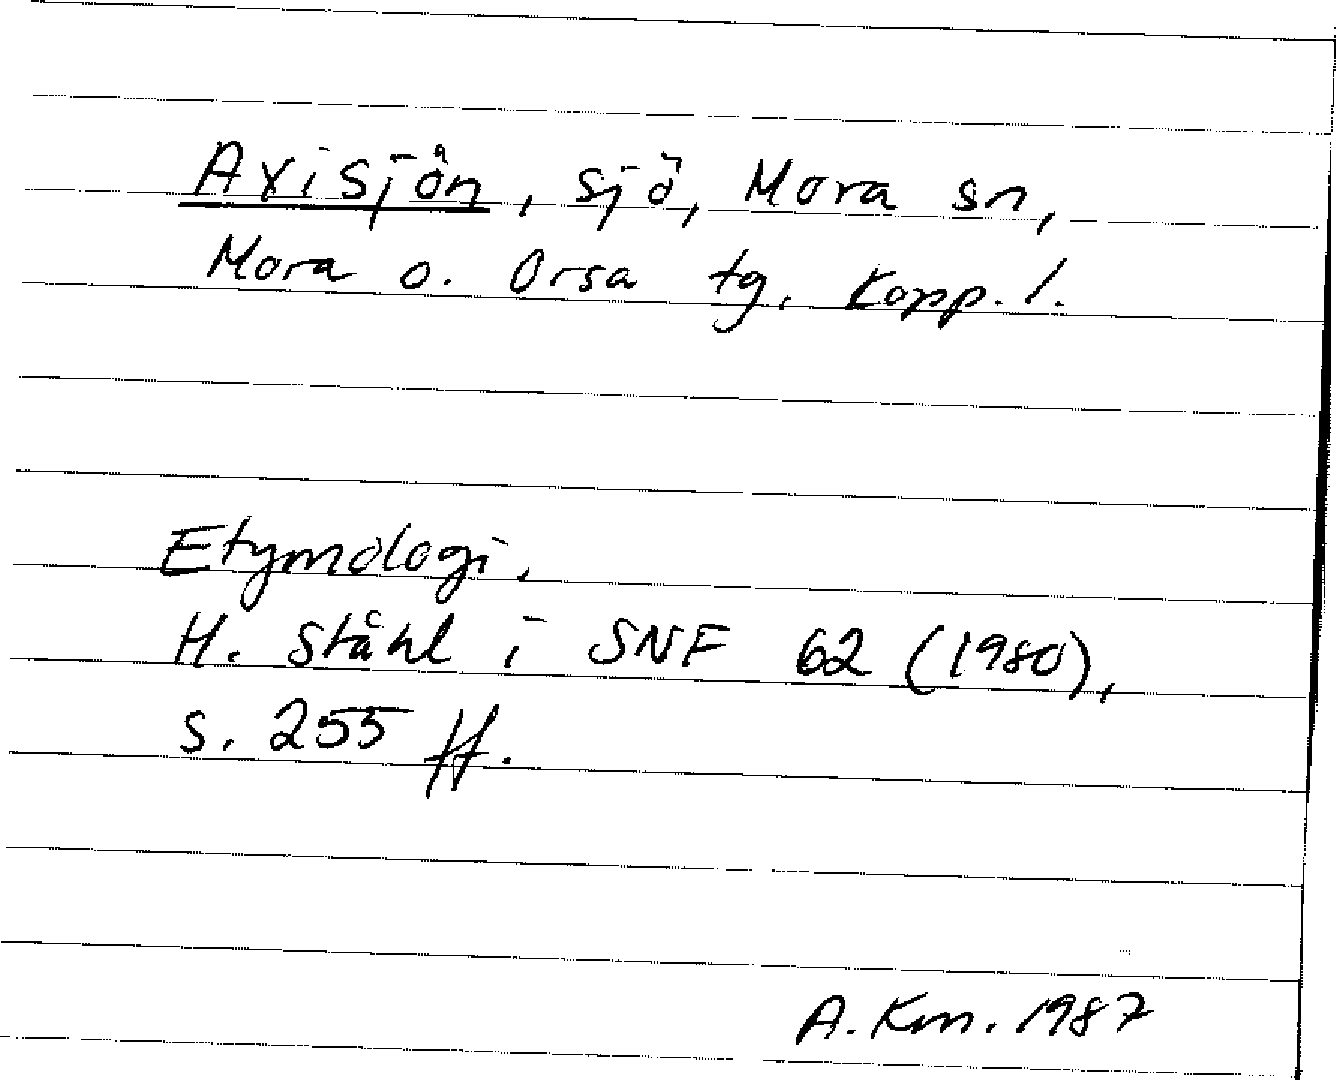 Axisjön, sjö, Mora sn,
Mora o. Orsa tg. Kopp. l.
Etymologi.
H. Ståhl i SNF 62 (1980),
s. 255 ff.
A. Km. 1987